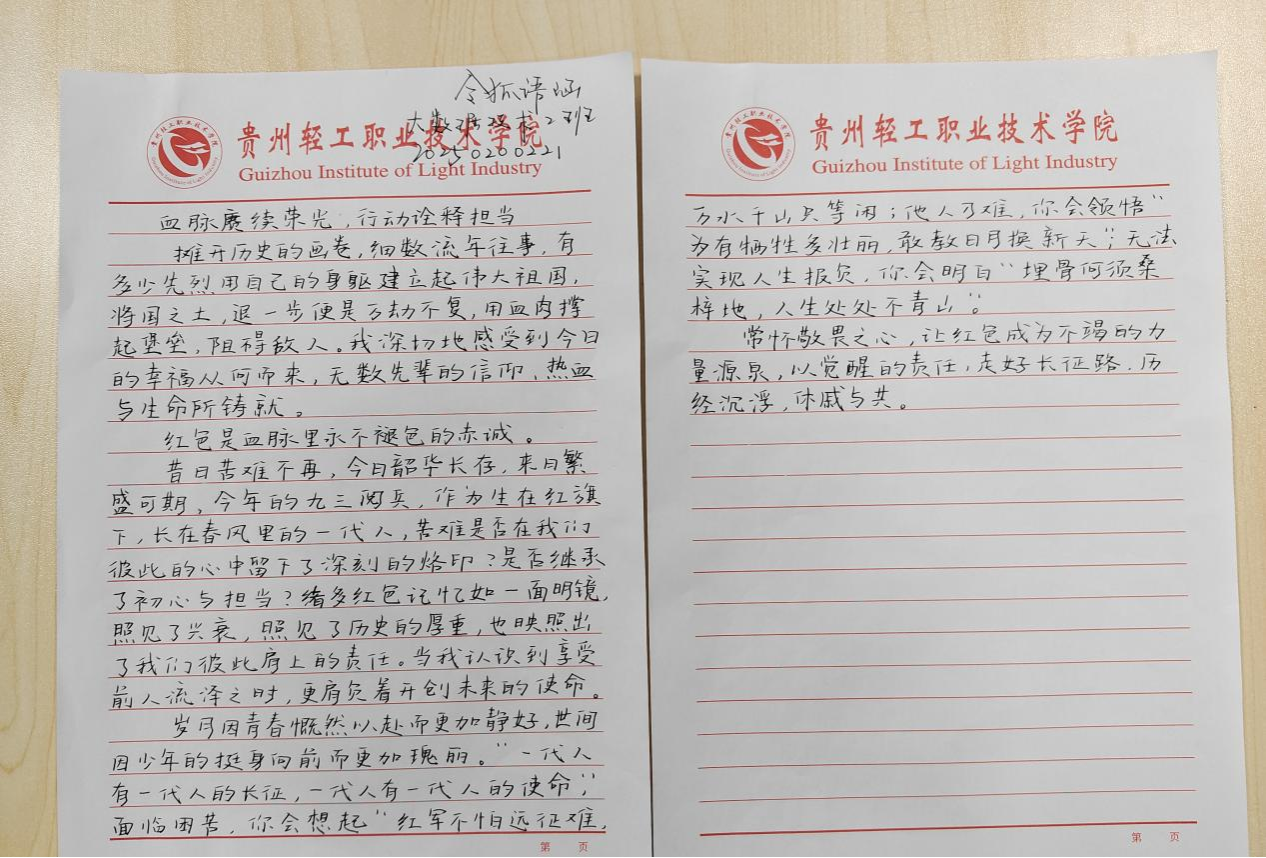 令狐语涵
大数据技术2班
20250200221
贵州轻工职业技术学院
Guizhou Institute of Light Industry
血脉赓续荣光,行动诠释担当
摊开历史的画卷,细数流年往事,有
多少先烈用自己的身躯建立起伟大祖国,
将国之土,退一步便是万劫不复,用血肉撑
起堡垒,阻碍敌人。我深切地感受到今日
的幸福从何而来,无数先辈的信仰、热血
与生命所铸就。
红色是血脉里永不褪色的赤诚。
昔日苦难不再,今日韶华长存,来日繁
盛可期,今年的九三阅兵,作为生在红旗
下,长在春风里的一代人,苦难是否在我们
彼此的心中留下了深刻的烙印?是否继承
了初心与担当?诸多红色记忆如一面明镜,
照见了兴衰,照见了历史的厚重,也映照出
了我们彼此肩上的责任。当我认识到享受
前人流泽之时,更肩负着开创未来的使命。
岁月因青春慨然以赴而更加静好,世间
因少年的挺身向前而更加瑰丽。“一代人
有一代人的长征,一代人有一代人的使命”;
面临困苦,你会想起“红军不怕远征难,
第 页
贵州轻工职业技术学院
Guizhou Institute of Light Industry
万水千山只等闲;他人刁难,你会领悟“
为有牺牲多壮丽,敢教日月换新天”;无法
实现人生报负,你会明白“埋骨何须桑
梓地,人生处处不青山”。
常怀敬畏之心,让红色成为不竭的力
量源泉,以觉醒的责任,走好长征路,历
经沉浮,休戚与共。
第 页